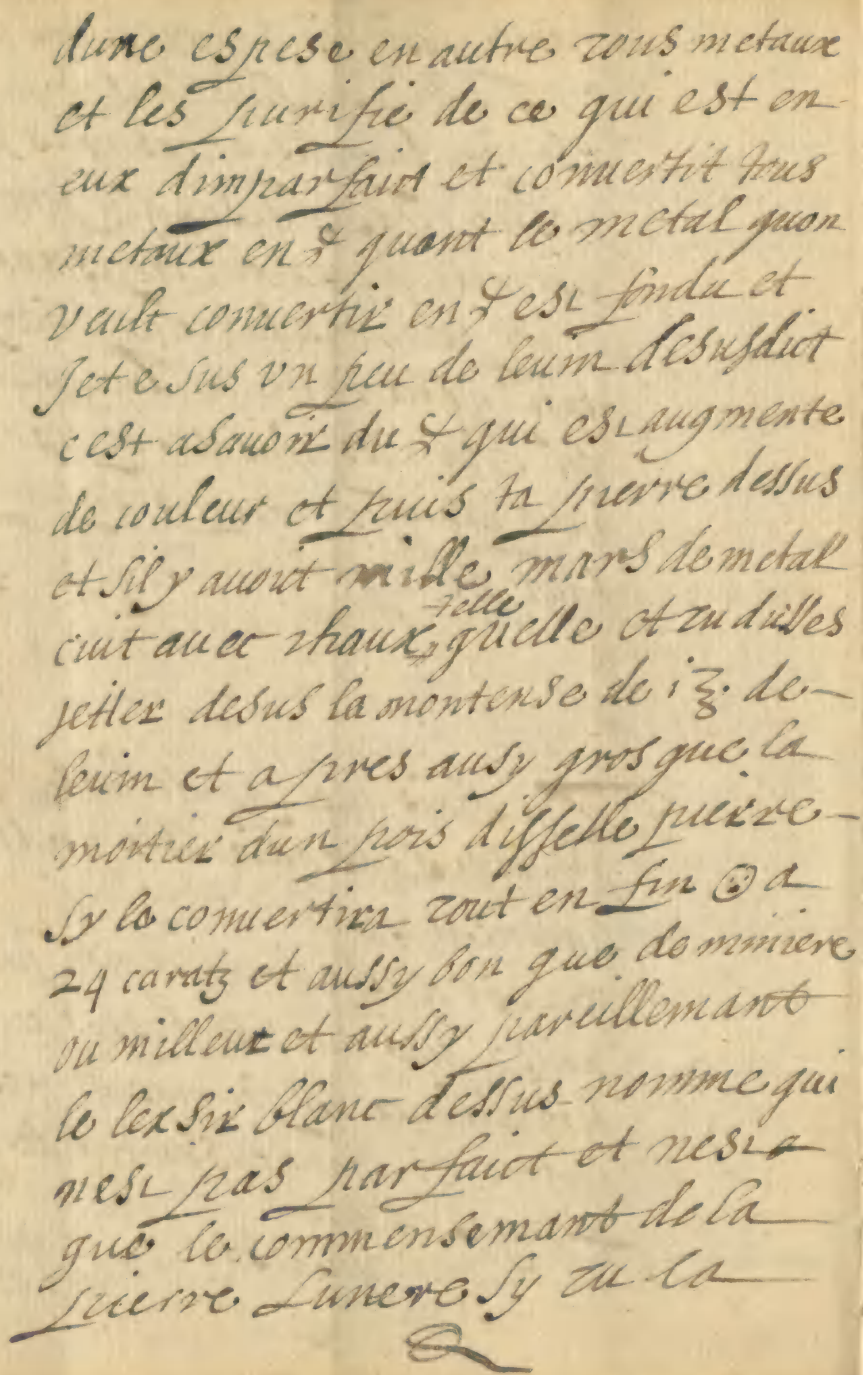 dune espese en autre tous metaux
et les purifie de ce qui est en
eux dimparfaict et conuertit tous
metaux en quant le metal quon
veult conuertir en est fondu et
Jete sus vn peu de leuin desusdict
cest asauoir du qui est augmente
de couleur et puis ta pierre dessus
et sil y auoit mille mars de metal
cuit auec chaux telle quelle et tu dusses
jetter desus la montense de i ℥. de
leuin et apres ausy gros que la
moitier dun pois disselle pierre
sy le conuertira tout en fin ☉ a
24 caratz et aussy bon que de miniere
ou milleur et aussy pareillemant
le lexsir blanc dessus nomme qui
nest pas parfaict et nest
que le commensemant de la
pierre Lunere sy tu la